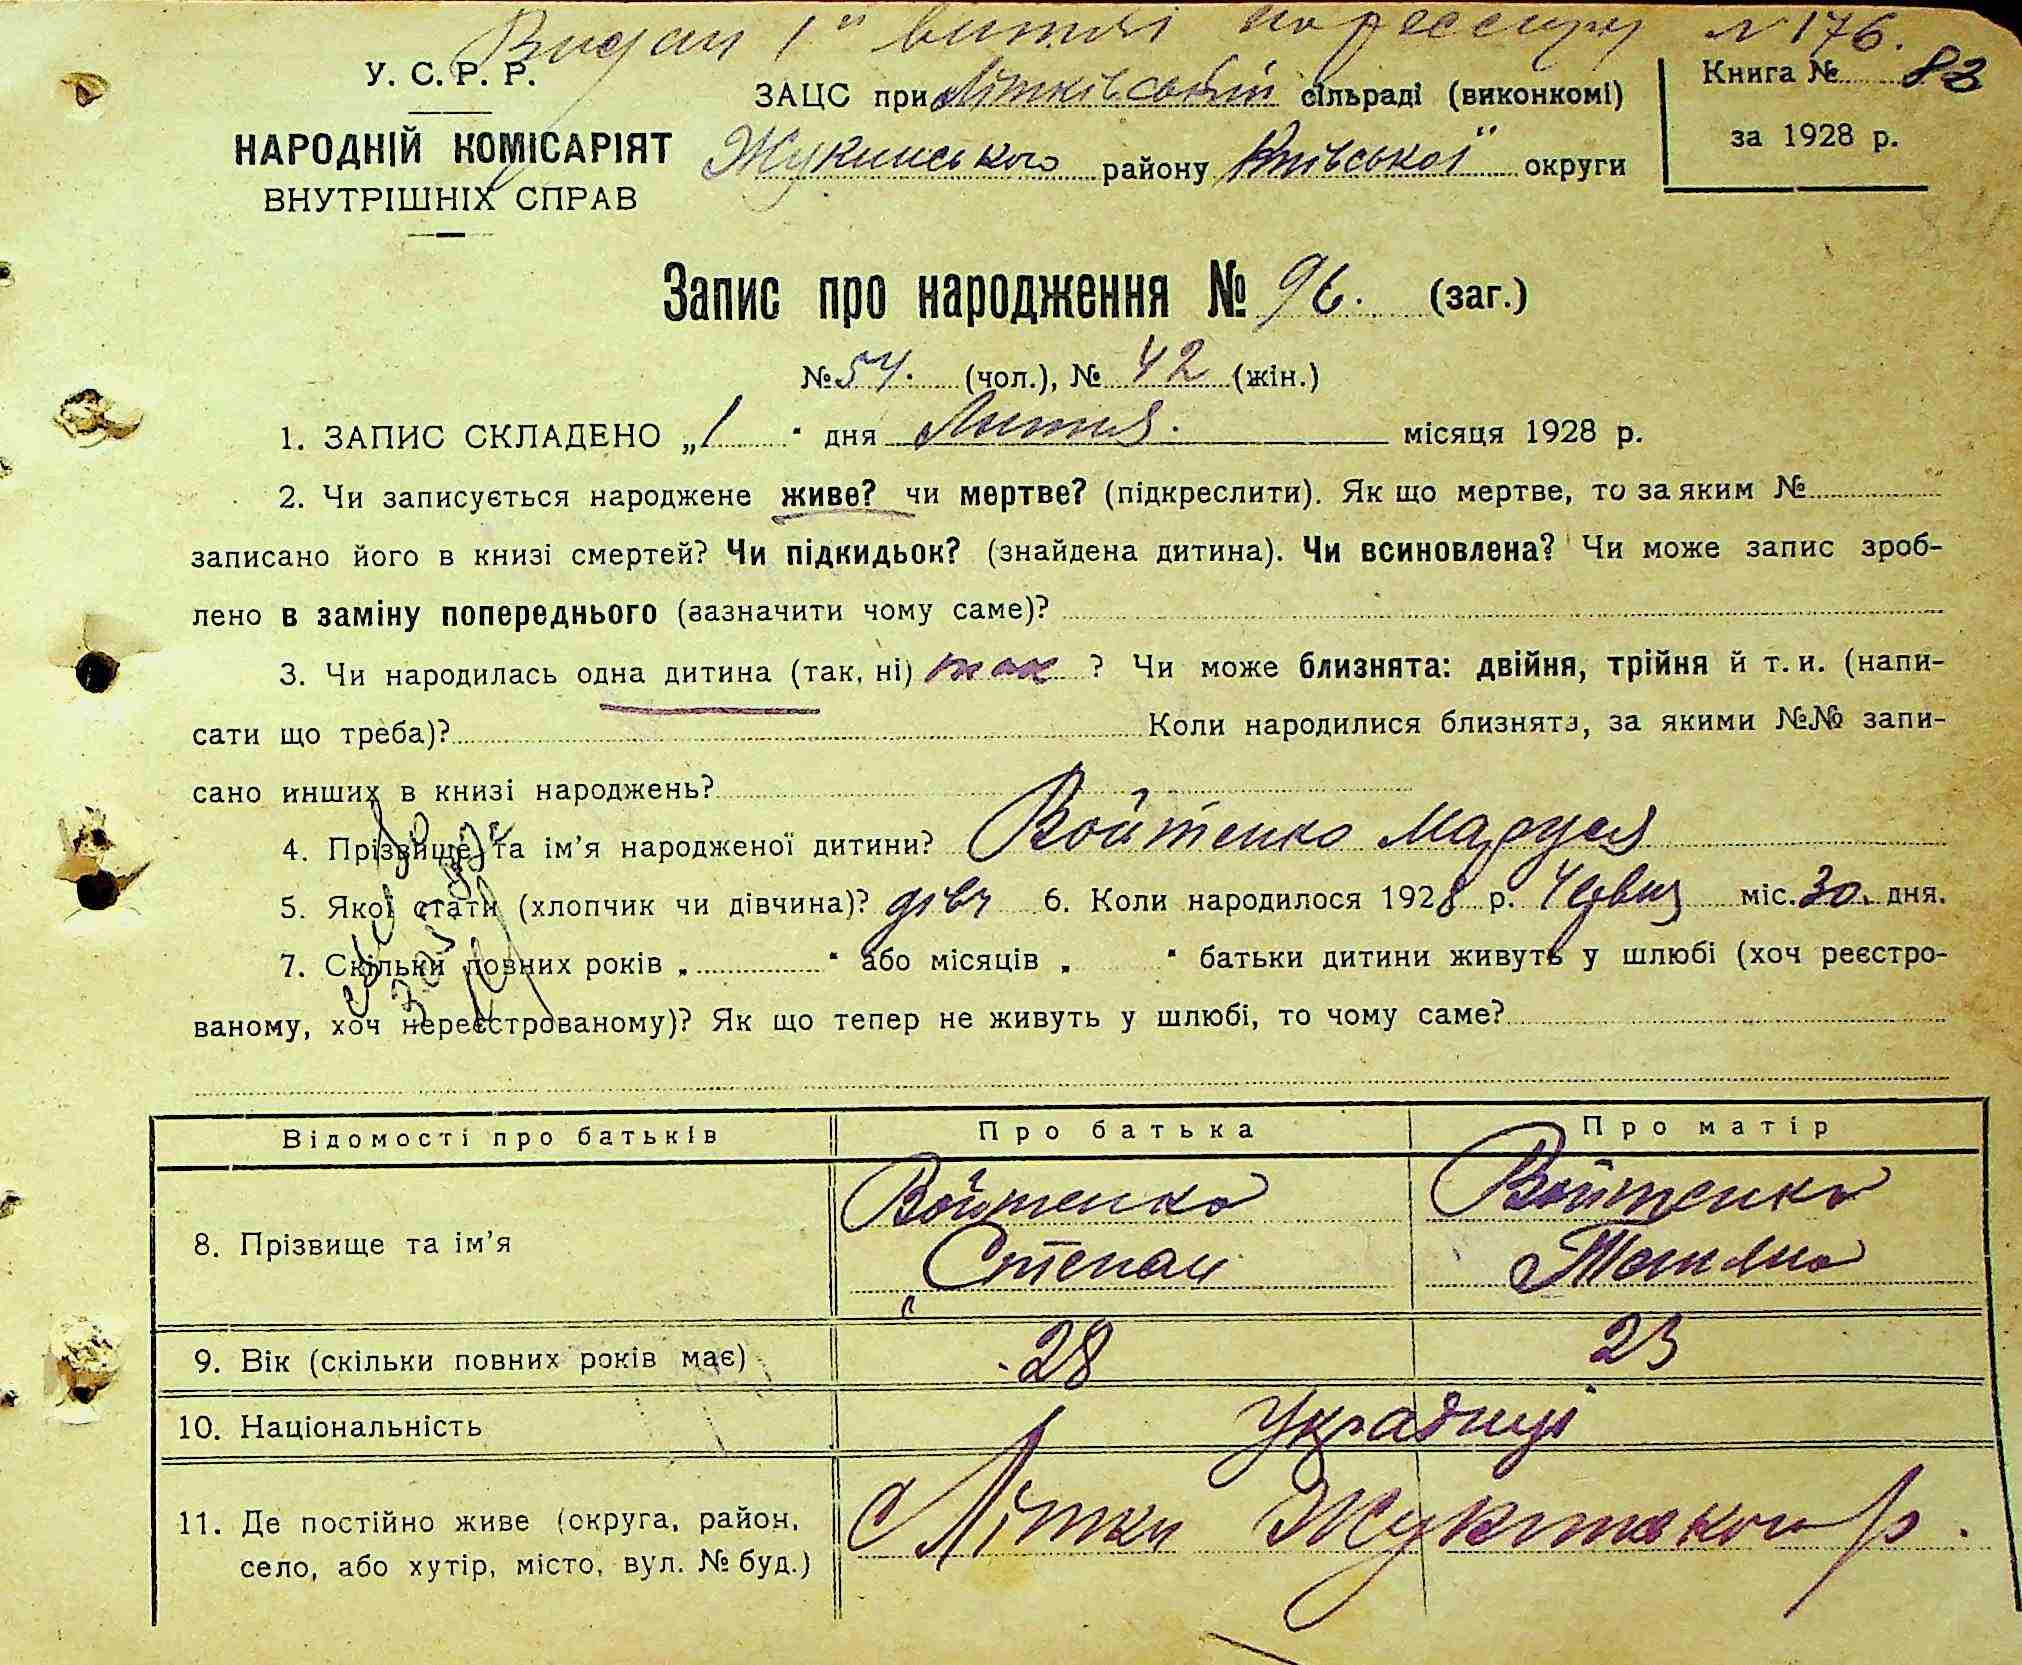 Видан 1" витяг по реєстру № 176.
У. С. Р. Р.
НАРОДНІЙ КОМІСАРІЯТ
ВНУТРІШНІХ СПРАВ
ЗАЦС при Літківській сільраді (виконкомі)
Жукинського району Київської округи
Книга № 83
за 1928 р.
Запис про народження № 96. (заг.)
№ 54. (чол.), № 42 (жін.)
1. ЗАПИС СКЛАДЕНО „1" дня Липня. місяця 1928 р.
2. Чи записується народжене живе? чи мертве? (підкреслити). Як що мертве, то за яким №
записано його в книзі смертей? Чи підкидьок? (знайдена дитина). Чи всиновлена? Чи може запис зроб-
лено в заміну попереднього (зазначити чому саме)?
3. Чи народилась одна дитина (так, ні) так ? Чи може близнята: двійня, трійня й т. и. (напи-
сати що треба)? Коли народилися близнята, за якими №№ запи-
сано инших в книзі народжень?
4. Прізвище та ім'я народженої дитини? Войтенко Маруся
5. Якої стати (хлопчик чи дівчина)? дівч 6. Коли народилося 1928 р. Червня міс. 30. дня.
7. Скільки повних років „ " або місяців „ " батьки дитини живуть у шлюбі (хоч реєстро-
ваному, хоч нереєстрованому)? Як що тепер не живуть у шлюбі, то чому саме?
Відомості про батьків Про батька Про матір
8. Прізвище та ім'я
Войтенко Степан
Войтенко Тетяна
9. Вік (скільки повних років має) 28 23
10. Національність Українці
11. Де постійно живе (округа, район,
село, або хутір, місто, вул. № буд.)
с Літки Жукинського р.